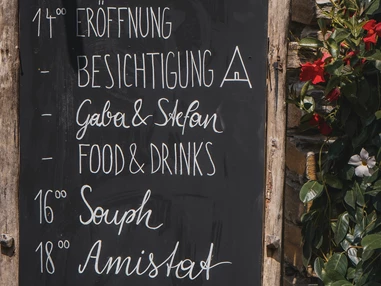 14⁰⁰ ERÖFFNUNG
- BESICHTIGUNG
- Gaba & Stefan
- FOOD & DRINKS
16⁰⁰ Souph
18⁰⁰ Amistat